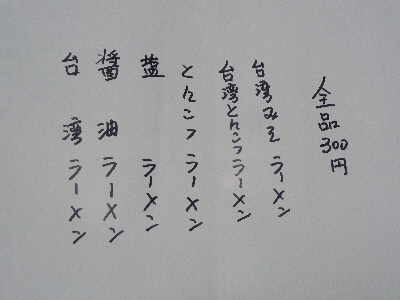 全品300円
台湾みそラーメン
台湾とんこつラーメン
とんこつラーメン
塩ラーメン
醤油ラーメン
台湾ラーメン